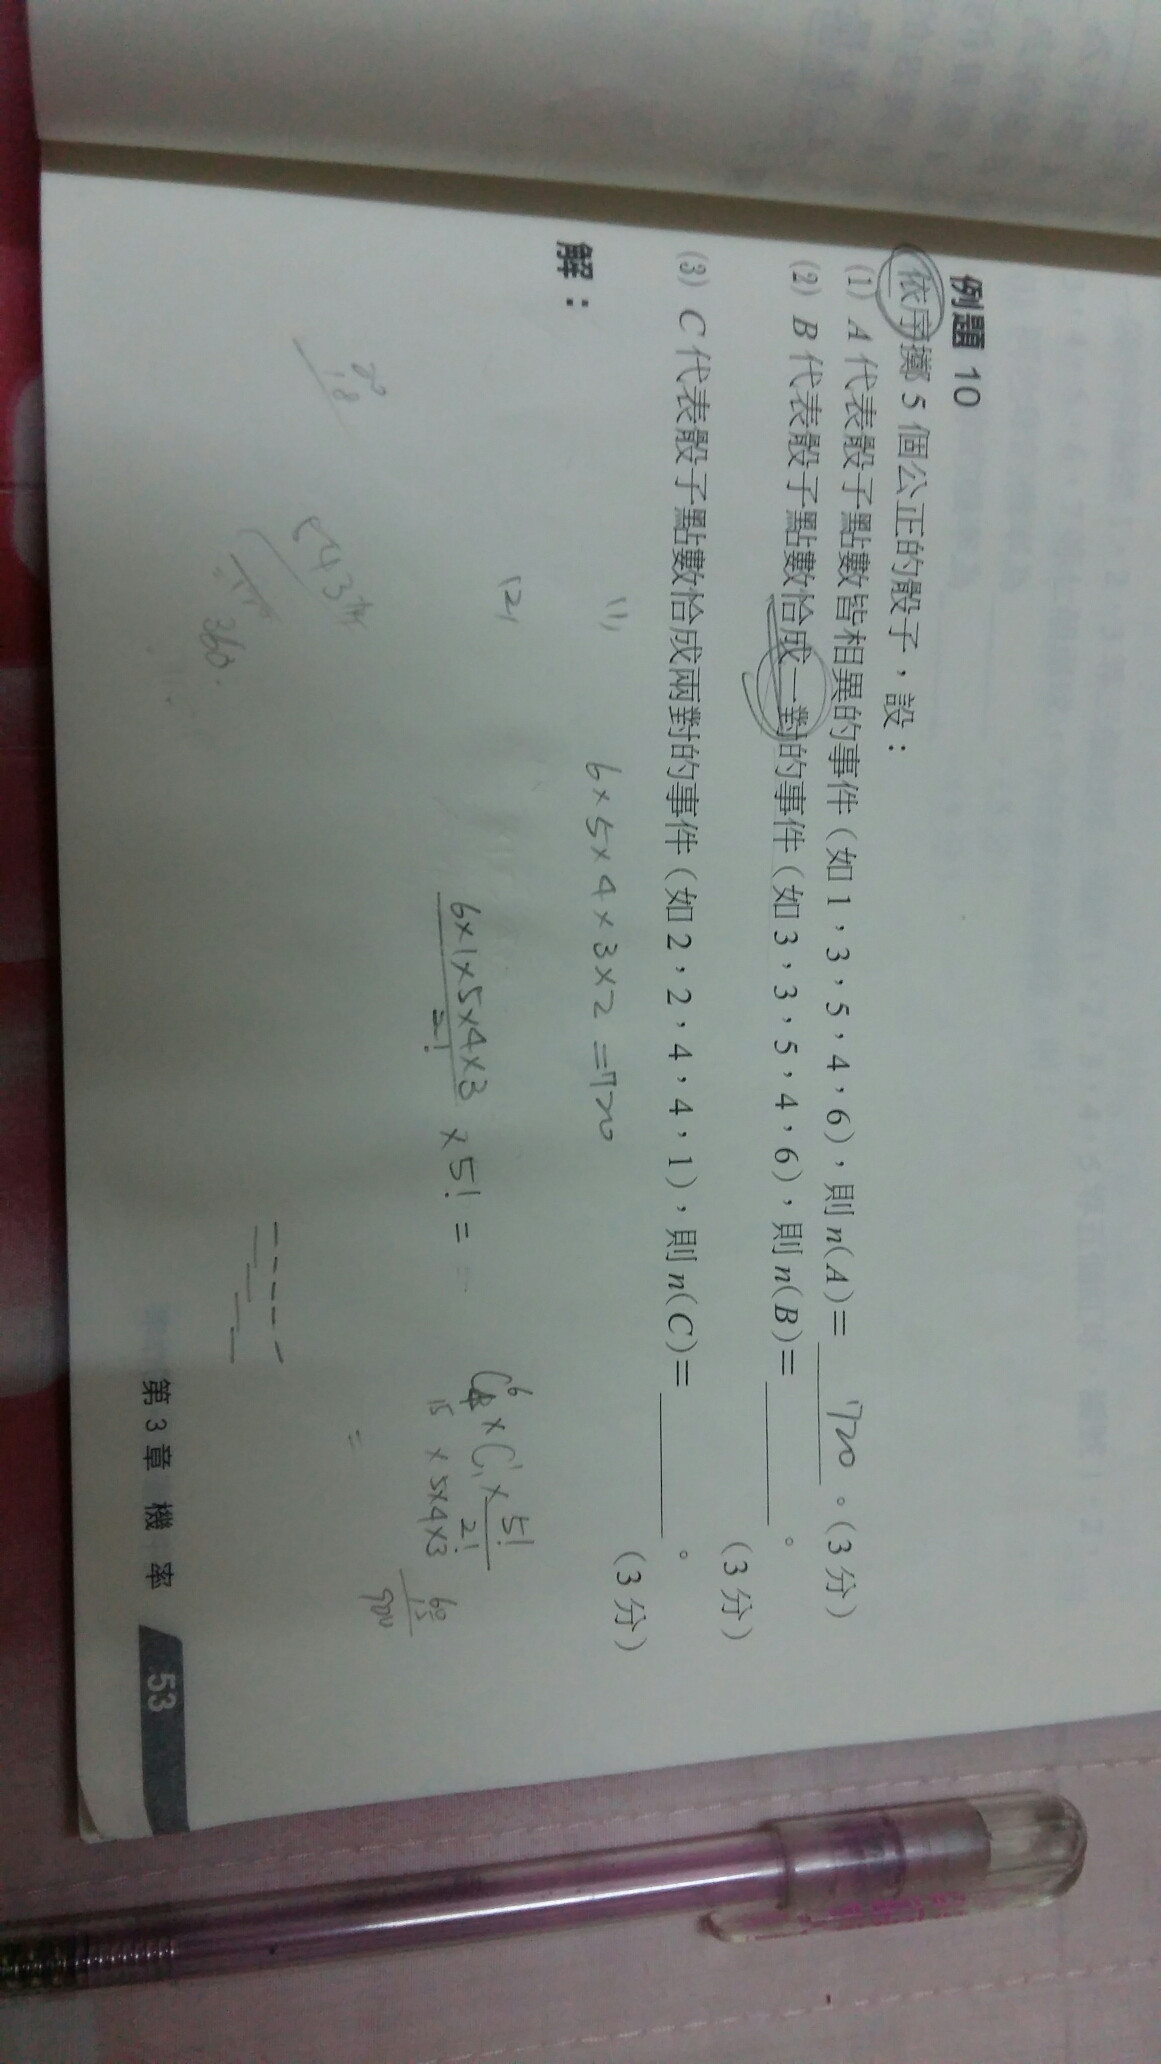 例題 10
依序擲 5 個公正的骰子，設：
(1) A 代表骰子點數皆相異的事件（如 1，3，5，4，6），則 n(A)= 720 。（3 分）
(2) B 代表骰子點數恰成一對的事件（如 3，3，5，4，6），則 n(B)=＿＿＿。
（3 分）
(3) C 代表骰子點數恰成兩對的事件（如 2，2，4，4，1），則 n(C)=＿＿＿。
（3 分）
解：
(1) 6×5×4×3×2=720
(2)
6×1×5×4×3
2!
×5! =
5!
2!
15 × 5×4×3
60
15
900
=
360
第 3 章 機 率 53